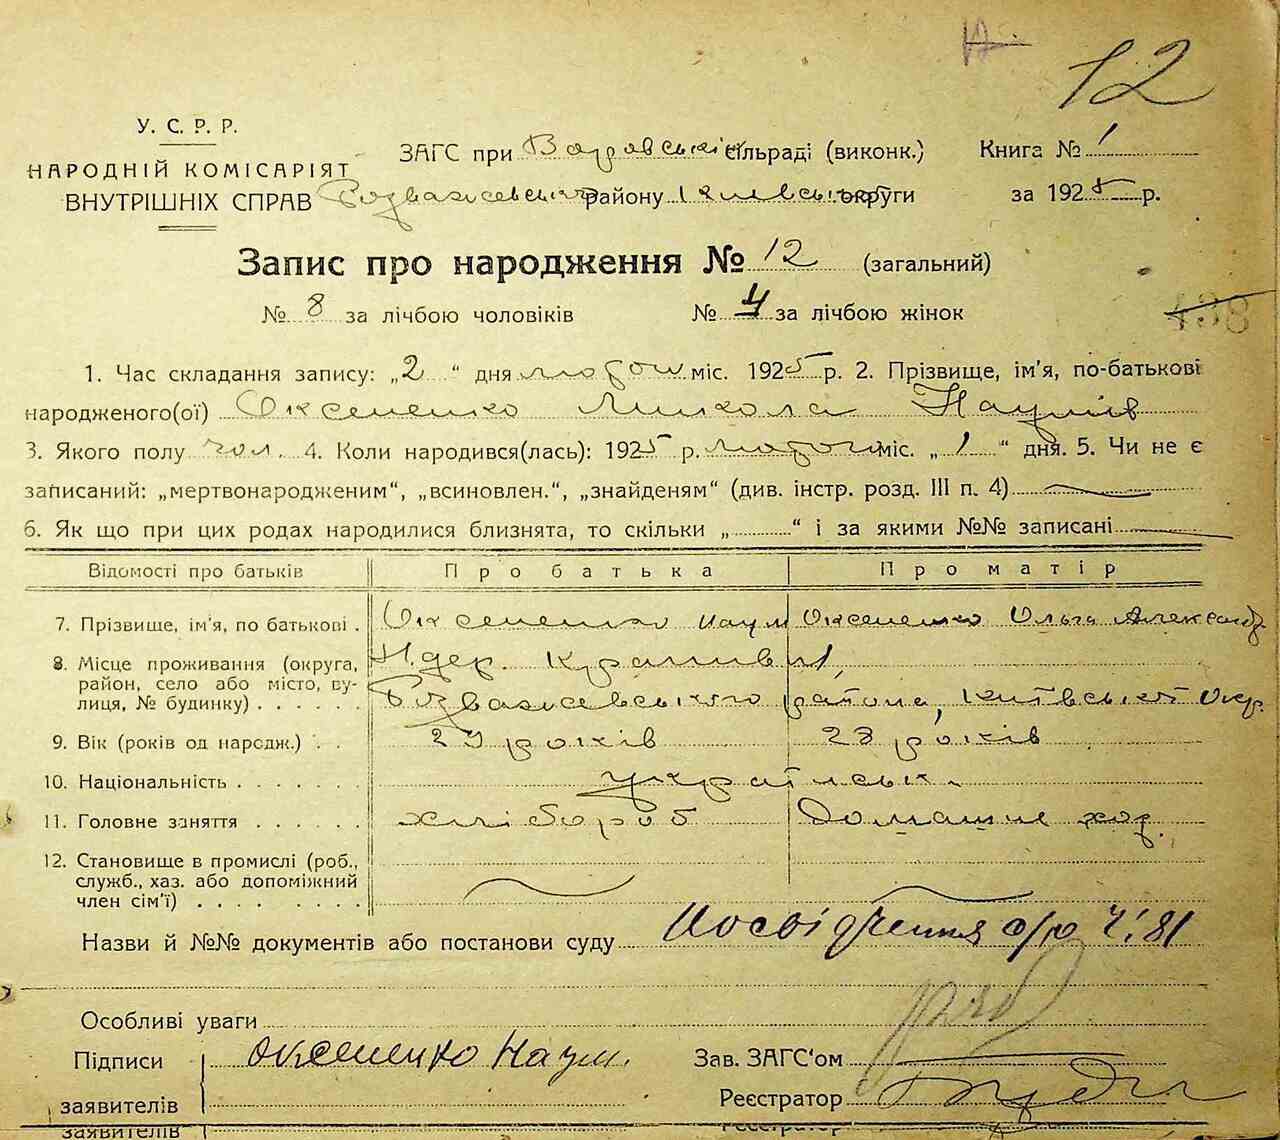 12
У. С. Р. Р.
НАРОДНІЙ КОМІСАРІЯТ
ВНУТРІШНІХ СПРАВ
ЗАГС при сільраді (виконк.) Книга № 1
Розважевського району Київської округи за 1925 р.
Запис про народження № 12 (загальний)
№ 8 за лічбою чоловіків № 4 за лічбою жінок
438
1. Час складання запису: „2“ дня міс. 1925 р. 2. Прізвище, ім'я, по-батькові
народженого(ої) Оксененко Микола Наумів
3. Якого полу чол. 4. Коли народився(лась): 1925 р. міс. „1“ дня. 5. Чи не є
записаний: „мертвонародженим“, „всиновлен.“, „знайденям“ (див. інстр. розд. III п. 4)
6. Як що при цих родах народилися близнята, то скільки „ “ і за якими №№ записані
Відомості про батьків Про батька Про матір
7. Прізвище, ім'я, по батькові . Оксененко Наум Оксененко Ольга Александ.
8. Місце проживання (округа,
район, село або місто, ву-
лиця, № будинку) . . . . . . Розважевського района, Київської Окр.
9. Вік (років од народж.) . . 29 років 28 років
10. Національність . . . . . . . українськ.
11. Головне заняття . . . . . . хлібороб домашнє хоз.
12. Становище в промислі (роб.,
служб., хаз. або допоміжний
член сім'ї) . . . . . . . . .
Назви й №№ документів або постанови суду Посвідчення с/р Ч. 81
Особливі уваги
Підписи Оксененко Наум. Зав. ЗАГС'ом
заявителів Реєстратор
заявителів Реєстратор